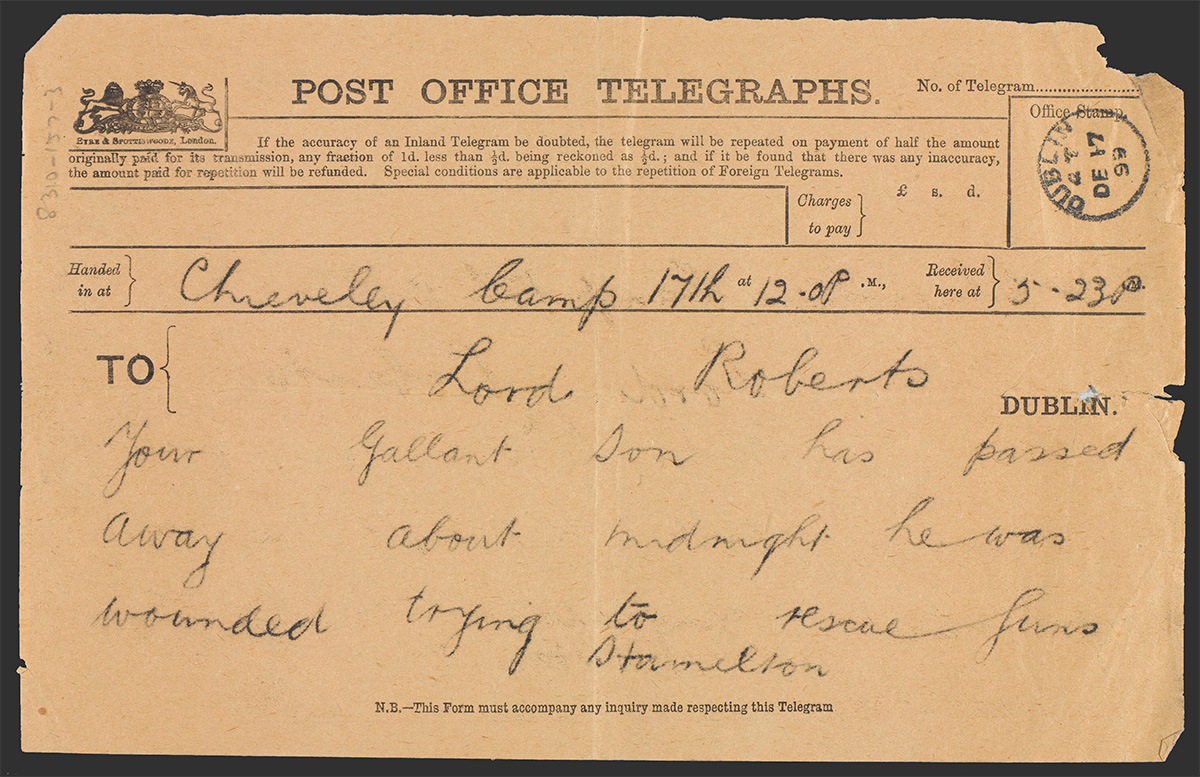 POST OFFICE TELEGRAPHS.
No. of Telegram
EYRE & SPOTTISWOODE, London.
Office Stamp.
DUBLIN
DE 17
99
If the accuracy of an Inland Telegram be doubted, the telegram will be repeated on payment of half the amount
originally paid for its transmission, any fraction of 1d. less than ½d. being reckoned as ½d.; and if it be found that there was any inaccuracy,
the amount paid for repetition will be refunded. Special conditions are applicable to the repetition of Foreign Telegrams.
Charges
to pay
£ s. d.
Handed
in at
Chieveley Camp 17th at 12-0P .M.,
Received
here at
5-23P M.
TO
Lord Roberts
DUBLIN.
Your Gallant Son has passed
away about midnight he was
wounded trying to rescue Guns
Hamelton
N.B.—This Form must accompany any inquiry made respecting this Telegram